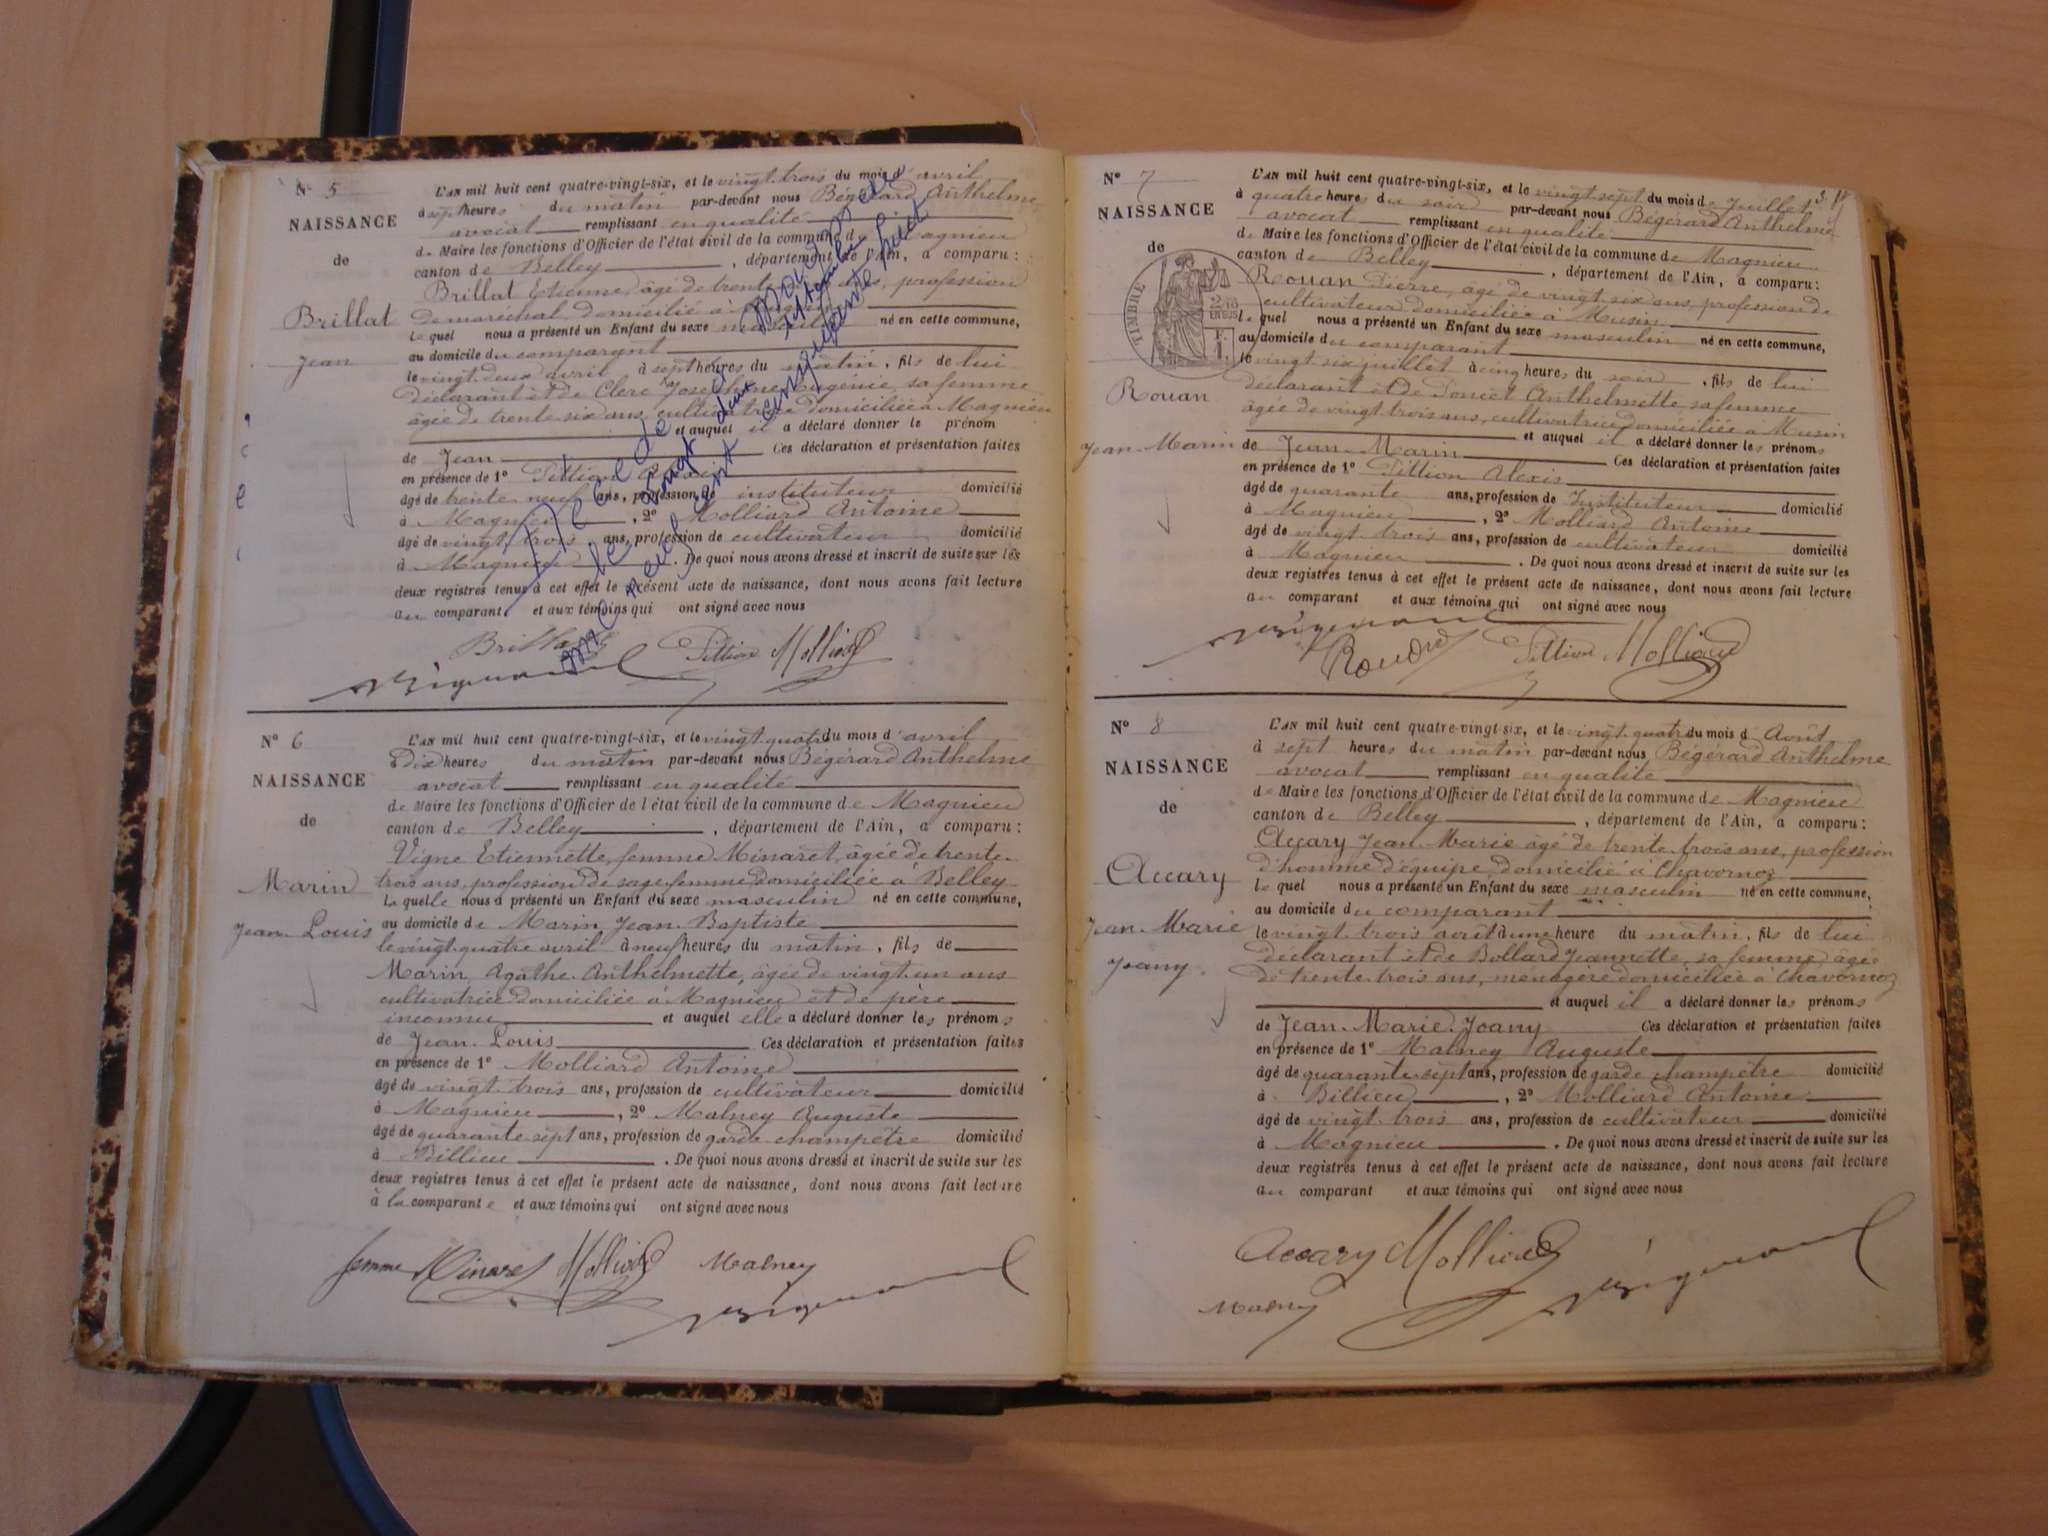 N° 5
NAISSANCE
de
Brillat
Jean
L'AN mil huit cent quatre-vingt-six, et le vingt trois du mois d'avril
à sept heures du matin par-devant nous Bégérard Anthelme
avocat remplissant en qualité
de Maire les fonctions d'Officier de l'état civil de la commune de Magnieu
canton de Belley, département de l'Ain, a comparu :
Brillat Etienne, âgé de trente ans, profession
de maréchal, domicilié à
lequel nous a présenté un Enfant du sexe masculin né en cette commune,
au domicile du comparant
le vingt deux avril à sept heures du matin, fils de lui
déclarant et de Clerc Josephine Eugenie, sa femme
âgée de trente six ans, cultivatrice domiciliée à Magnieu
et auquel il a déclaré donner le prénom
de Jean Ces déclaration et présentation faites
en présence de 1° Pittion
âgé de trente neuf ans, profession de instituteur domicilié
à Magnieu, 2° Molliard Antoine
âgé de vingt trois ans, profession de cultivateur domicilié
à Magnieu. De quoi nous avons dressé et inscrit de suite sur les
deux registres tenus à cet effet le présent acte de naissance, dont nous avons fait lecture
au comparant et aux témoins qui ont signé avec nous
Brillat Pittion Molliard
Décédé à
le vingt deux septembre
mil neuf cent cinquante
N° 6
NAISSANCE
de
Marin
Jean-Louis
L'AN mil huit cent quatre-vingt-six, et le vingt quatre du mois d'avril
Dix heures du matin par-devant nous Bégérard Anthelme
avocat remplissant en qualité
de Maire les fonctions d'Officier de l'état civil de la commune de Magnieu
canton de Belley, département de l'Ain, a comparu :
Vigne Etiennette, femme Minaret, âgée de trente
trois ans, profession de sage femme, domiciliée à Belley
Laquelle nous a présenté un Enfant du sexe masculin né en cette commune,
au domicile de Marin Jean Baptiste
le vingt quatre avril à neuf heures du matin, fils de
Marin Agathe Anthelmette, âgée de vingt un ans
cultivatrice domiciliée à Magnieu et de père
inconnu et auquel elle a déclaré donner les prénoms
de Jean-Louis Ces déclaration et présentation faites
en présence de 1° Molliard Antoine
âgé de vingt trois ans, profession de cultivateur domicilié
à Magnieu, 2° Malney Auguste
âgé de quarante sept ans, profession de garde champêtre domicilié
à Billieu. De quoi nous avons dressé et inscrit de suite sur les
deux registres tenus à cet effet le présent acte de naissance, dont nous avons fait lecture
à la comparante et aux témoins qui ont signé avec nous
femme Minaret Molliard Malney
N° 7
NAISSANCE
de
TIMBRE
Rouan
Jean-Marin
L'AN mil huit cent quatre-vingt-six, et le vingt sept du mois de Juillet
à quatre heures du soir par-devant nous Bégérard Anthelme
avocat remplissant en qualité
de Maire les fonctions d'Officier de l'état civil de la commune de Magnieu
canton de Belley, département de l'Ain, a comparu :
Rouan Pierre, âgé de vingt six ans, profession de
cultivateur domicilié à Musin
lequel nous a présenté un Enfant du sexe masculin né en cette commune,
au domicile du comparant
le vingt six juillet à cinq heures du soir, fils de lui
déclarant et de Poncet Anthelmette sa femme
âgée de vingt trois ans, cultivatrice domiciliée à Musin
et auquel il a déclaré donner les prénoms
de Jean-Marin Ces déclaration et présentation faites
en présence de 1° Pittion Alexis
âgé de quarante ans, profession de Instituteur domicilié
à Magnieu, 2° Molliard Antoine
âgé de vingt trois ans, profession de cultivateur domicilié
à Magnieu. De quoi nous avons dressé et inscrit de suite sur les
deux registres tenus à cet effet le présent acte de naissance, dont nous avons fait lecture
au comparant et aux témoins qui ont signé avec nous
Rouan Pittion Molliard
N° 8
NAISSANCE
de
Accary
Jean-Marie
Joany
L'AN mil huit cent quatre-vingt-six, et le vingt quatre du mois d'Août
à sept heures du matin par-devant nous Bégérard Anthelme
avocat remplissant en qualité
de Maire les fonctions d'Officier de l'état civil de la commune de Magnieu
canton de Belley, département de l'Ain, a comparu :
Accary Jean-Marie âgé de trente trois ans, profession
d'homme d'équipe, domicilié à Chavornoz
lequel nous a présenté un Enfant du sexe masculin né en cette commune,
au domicile du comparant
le vingt trois août à une heure du matin, fils de lui
déclarant et de Bollard Jeannette, sa femme, âgée
de trente trois ans, ménagère domiciliée à Chavornoz
et auquel il a déclaré donner les prénoms
de Jean-Marie Joany Ces déclaration et présentation faites
en présence de 1° Malney Auguste
âgé de quarante sept ans, profession de garde champêtre domicilié
à Billieu, 2° Molliard Antoine
âgé de vingt trois ans, profession de cultivateur domicilié
à Magnieu. De quoi nous avons dressé et inscrit de suite sur les
deux registres tenus à cet effet le présent acte de naissance, dont nous avons fait lecture
au comparant et aux témoins qui ont signé avec nous
Accary Molliard
Malney